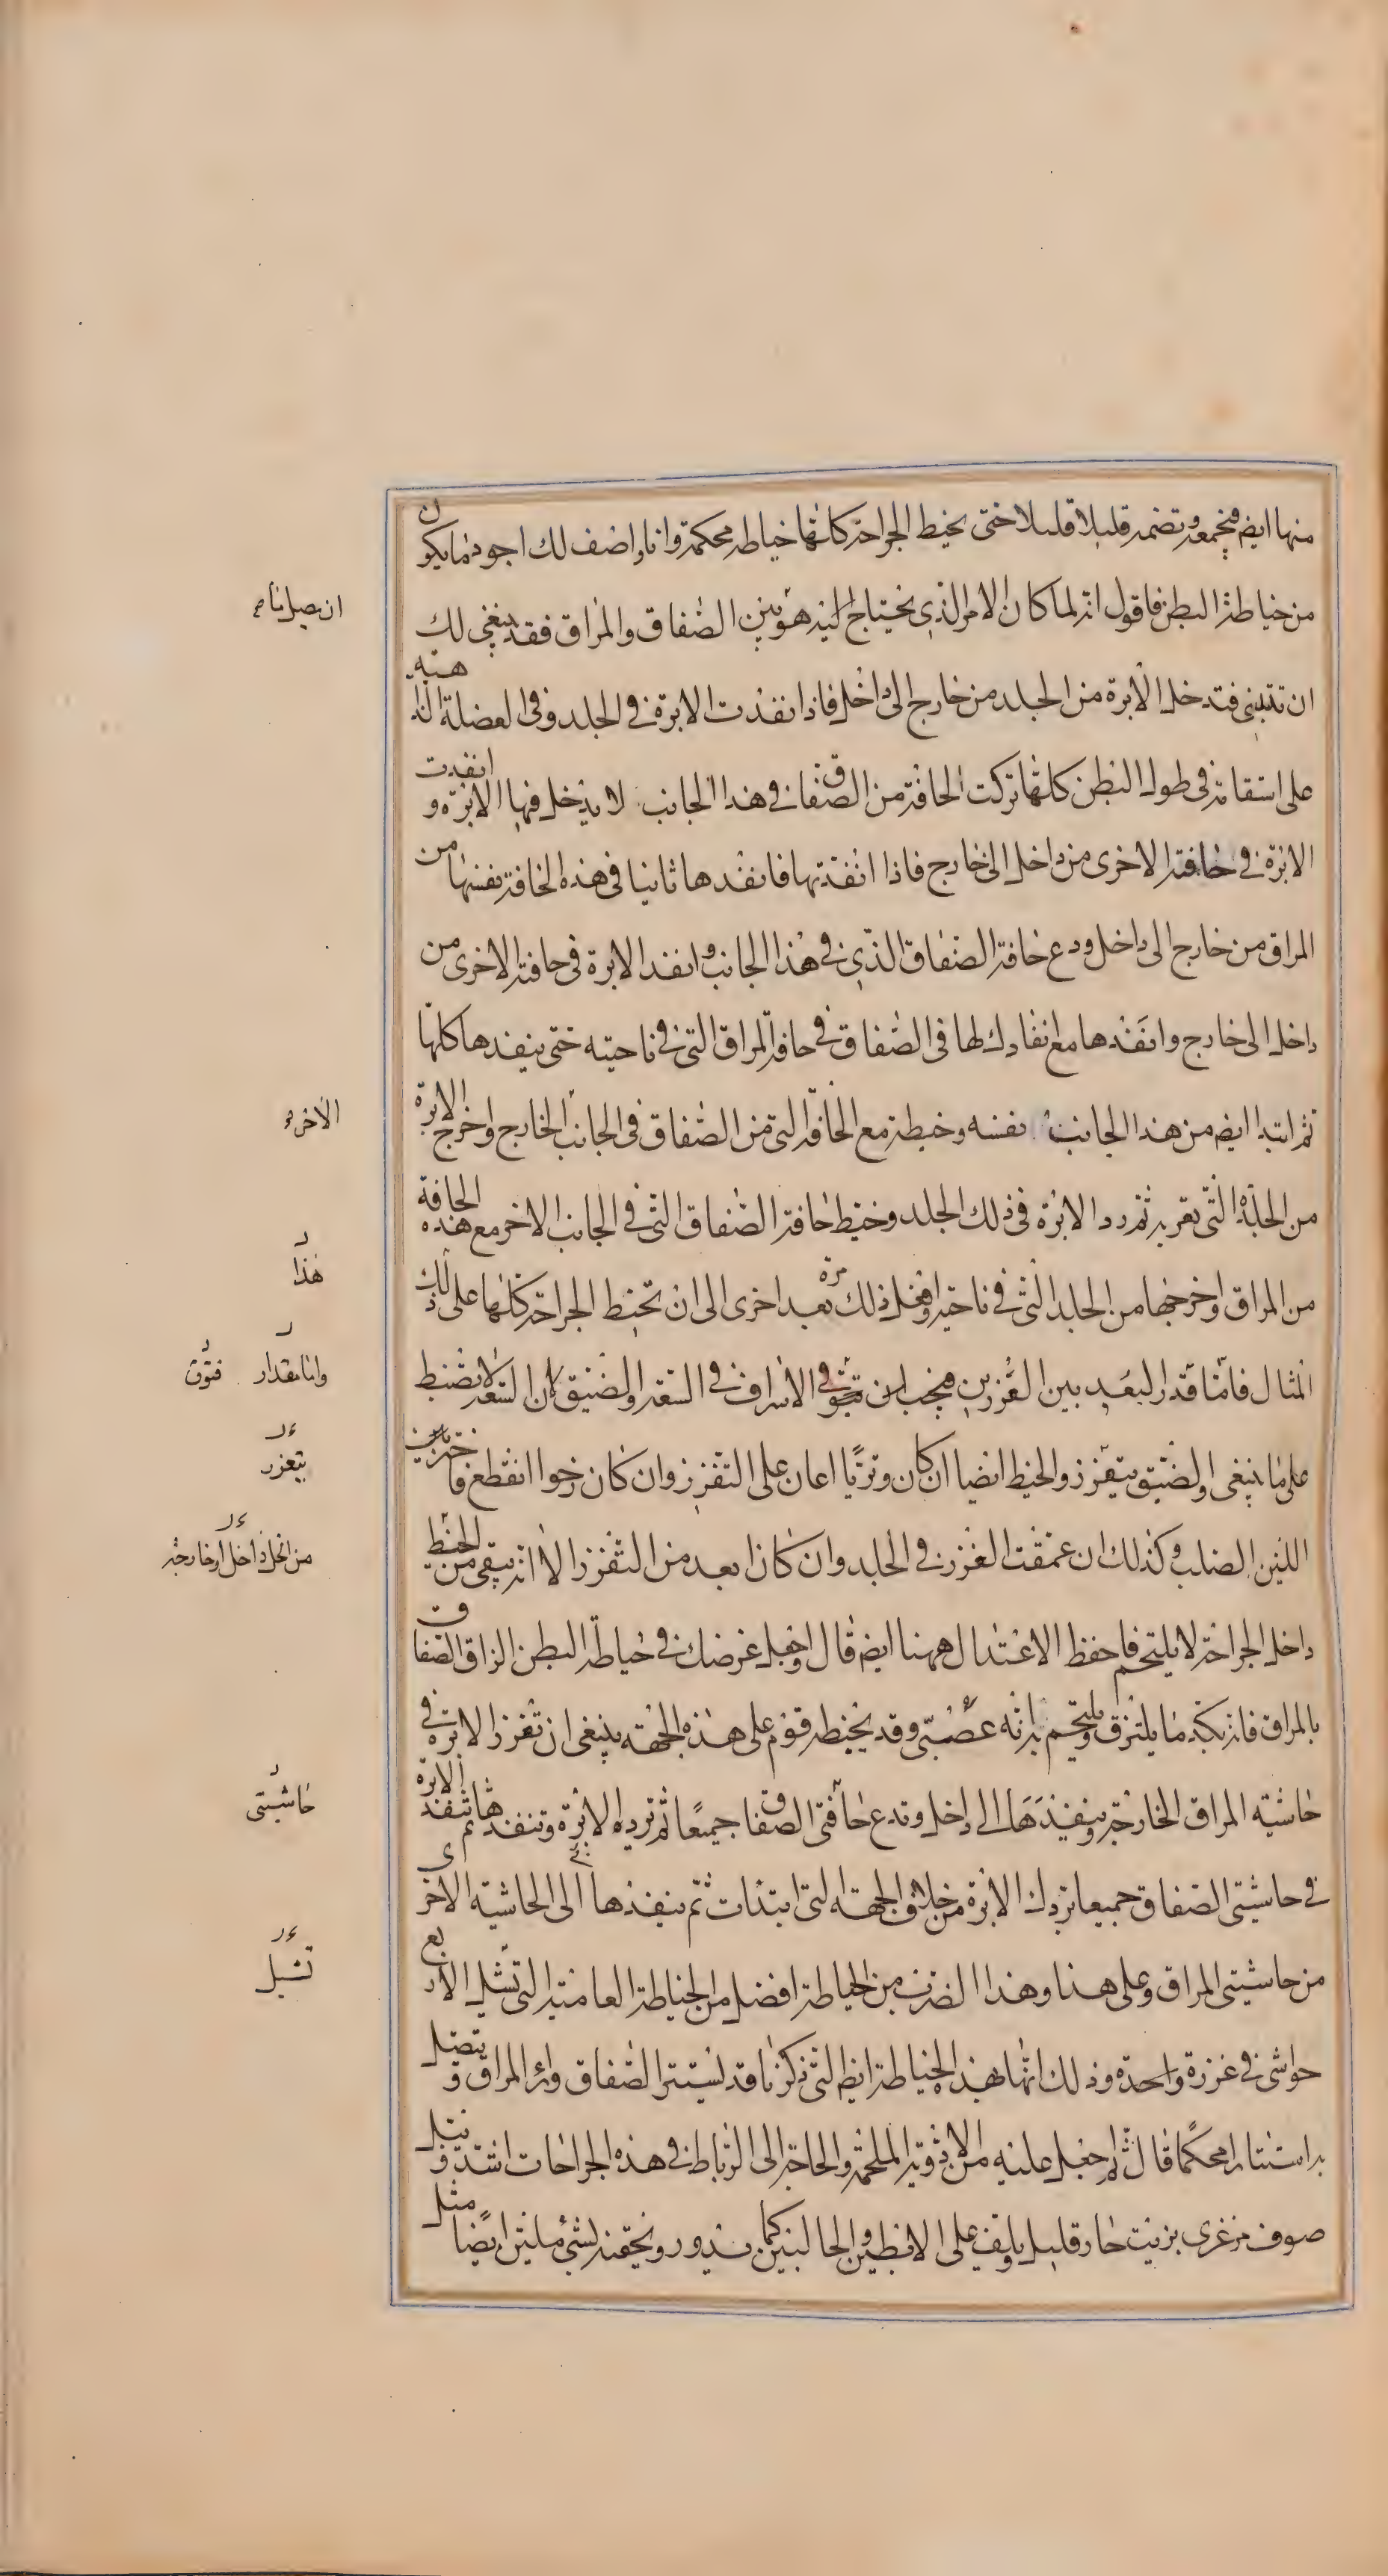 منها ايضم فيجمعه وتضمه قليلا قليلا حتى يخيط الجراحة كلها خياطة محكمة وانا واصف لك اجود ما يكون
من خياطة البطن فاقول انه لما كان الامر الذي يحتاج اليه هو بين الصفاق والمراق فقد ينبغي لك
ان يصل تام
ان تبتدي فتدخل الابرة من الجلد من خارج الى داخل فاذا انفذت الابرة في الجلد وفي العضلة الذاهبة
على استقامة في طول البطن كلها تركت الحافة من الصفاق في هذا الجانب لا يدخل فيها الابرة و انفدت
الابرة في حافته الاخرى من داخل الى خارج فاذا انفذتها فانفدها ثانيا في هذه الحافة نفسها من
المراق من خارج الى داخل ودع حافة الصفاق الذي في هذا الجانب وانفد الابرة في حافته الاخرى من
داخل الى خارج وانفدها مع انفادك لها في الصفاق في حافة المراق التي في ناحيته حتى ينفدها كلها
ثم ابتد ايضم من هذا الجانب نفسه وخيطه مع الحافة التي من الصفاق في الجانب الخارج واخرج الابرة
الاخرء
من الجلدة التي بقربه ثم رد الابرة في ذلك الجلد وخيط حافة الصفاق التي في الجانب الاخر مع هذه الحافة
من المراق واخرجها من الجلد التي في ناحيته وافعل ذلك مرة بعد اخرى الى ان تخيط الجراحة كلها على ذلك
هذا
المثال فاما قدار البعد بين الغرزين فيجب ان تتوقى الاسراف في السعة والضيق لان السعة لا يضبط
واما مقدار
فتوق
على ما ينبغي والضيق يتفزز والخيط ايضا ان كان وتريا اعان على التفزز وان كان رخوا انقطع فاختر بين
يتعزر
اللين الصلب وكذلك ان عمقت الغرز في الجلد وان كان ابعد من التفزز الا انه يبقى من الخيط
داخل الجراحة لا يلتحم فاحفظ الاعتدال ههنا ايضم قال واجعل غرضك في خياطة البطن الزاق الصفاق
بالمراق فانه بكد ما يلتزق ويلتحم به لانه عصبي وقد يخيطه قوم على هذه الجهة ينبغي ان تغرز الابرة في
حاشية المراق الخارجة وتنفذها الى داخل وتدع حافتي الصفاق جميعا ثم ترد الابرة وتنفدها ثم تنفد الابرة
حاشيتي
في حاشيتي الصفاق جميعا تردك الابرة من خلاف الجهة التي ابتدات ثم ينفذها الى الحاشية الاخرى
من حاشيتي المراق وعلى هذا وهذا الضرب من الخياطة افضل من الخياطة العامية التي تشل الاربع
تشيل
حواشي في غرزة واحدة وذلك انها بهذه الخياطة ايضم التي ذكرنا قد يستتر الصفاق وراء المراق ويتصل
به استتارا محكما قال ثم اجعل عليه من الادوية الملحمة والحاجة الى الرباط في هذه الجراحات اشد وتبل
صوف مرعزى بزيت حار قليل ويلف على الابطين والحالبين كما يدور وتحقنه بشيء ملين ايضا مثل